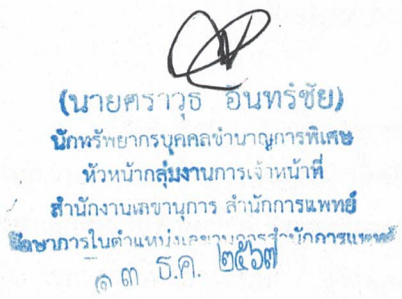 (นายศราวุธ อินทร์ชัย)
นักทรัพยากรบุคคลชำนาญการพิเศษ
หัวหน้ากลุ่มงานการเจ้าหน้าที่
สำนักงานเลขานุการ สำนักการแพทย์
รักษาการในตำแหน่งเลขานุการสำนักการแพทย์
๑๓ ธ.ค. ๒๕๖๗